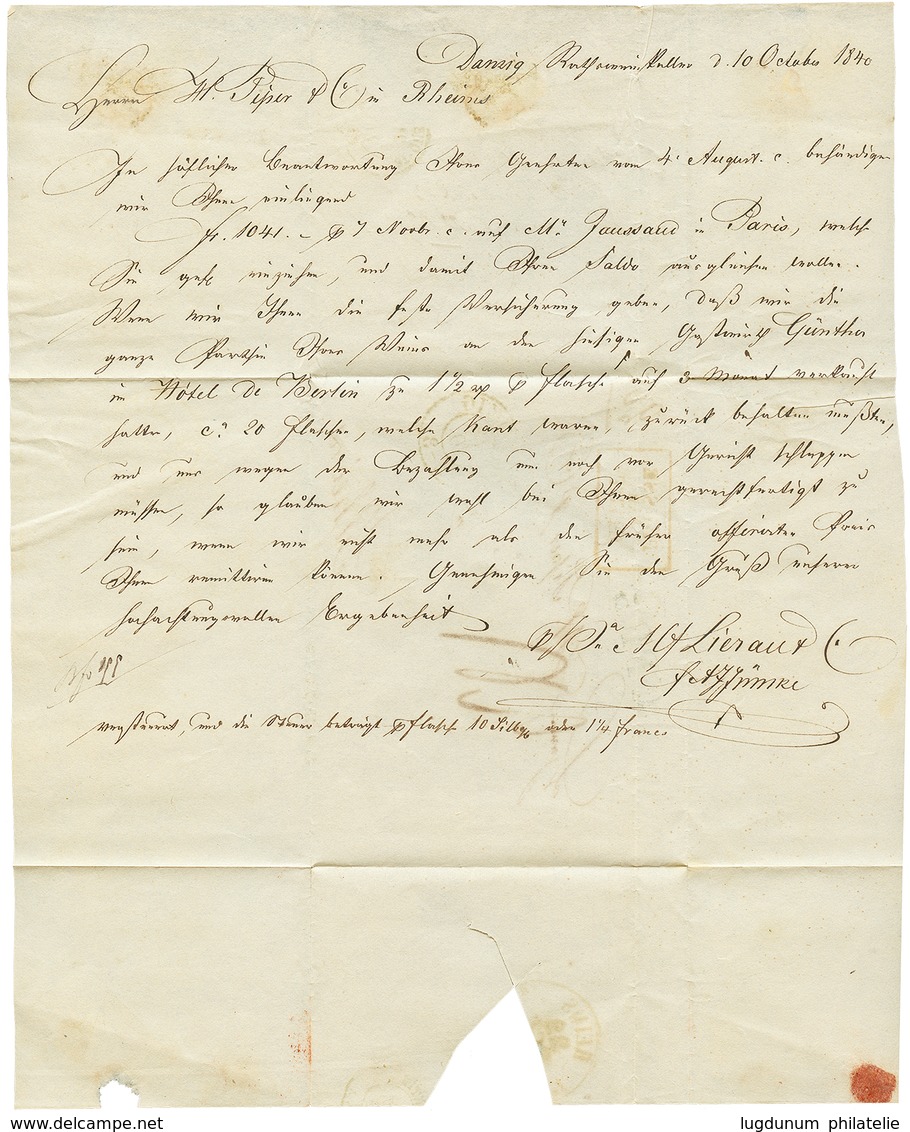 Danzig Rathsweinkeller d. 10 October 1840
Herrn H. Piper & Co in Rheims
In höflicher Beantwortung Ihres Geehrten vom 4. August. c. behändigen
wir Ihnen einliegend
fr. 1041. – p 7 Novbr. c. auf Mr. Jaussaud in Paris, welche
Sie gefl. einziehen, und damit Ihren Saldo ausgleichen wollen.
Wenn wir Ihnen die feste Versicherung geben, daß wir die
ganze Parthie Ihres Weins an den hiesigen Gastwirth Günther
im Hôtel de Berlin zu 1 1/2 rp p Flasche auf 3 Monat verkauft
hatte, ca 20 Flaschen, welche waren, zurück behalten mußten,
und uns wegen der Bezahlung nun noch vor Gericht schleppen
müssen, so glauben wir wohl bei Ihnen gerechtfertigt zu
sein, wenn wir nicht mehr als den früher offerirten Preis
Ihnen remittiren können. Genehmigen Sie den Gruß unserer
hochachtungsvollen Ergebenheit
Lierau & Co
Jünke
versteuert, und die Steuer beträgt p Flasche 10 Silbg oder 1 1/4 francs
REIMS
www.delcampe.net
lugdunum philatelie